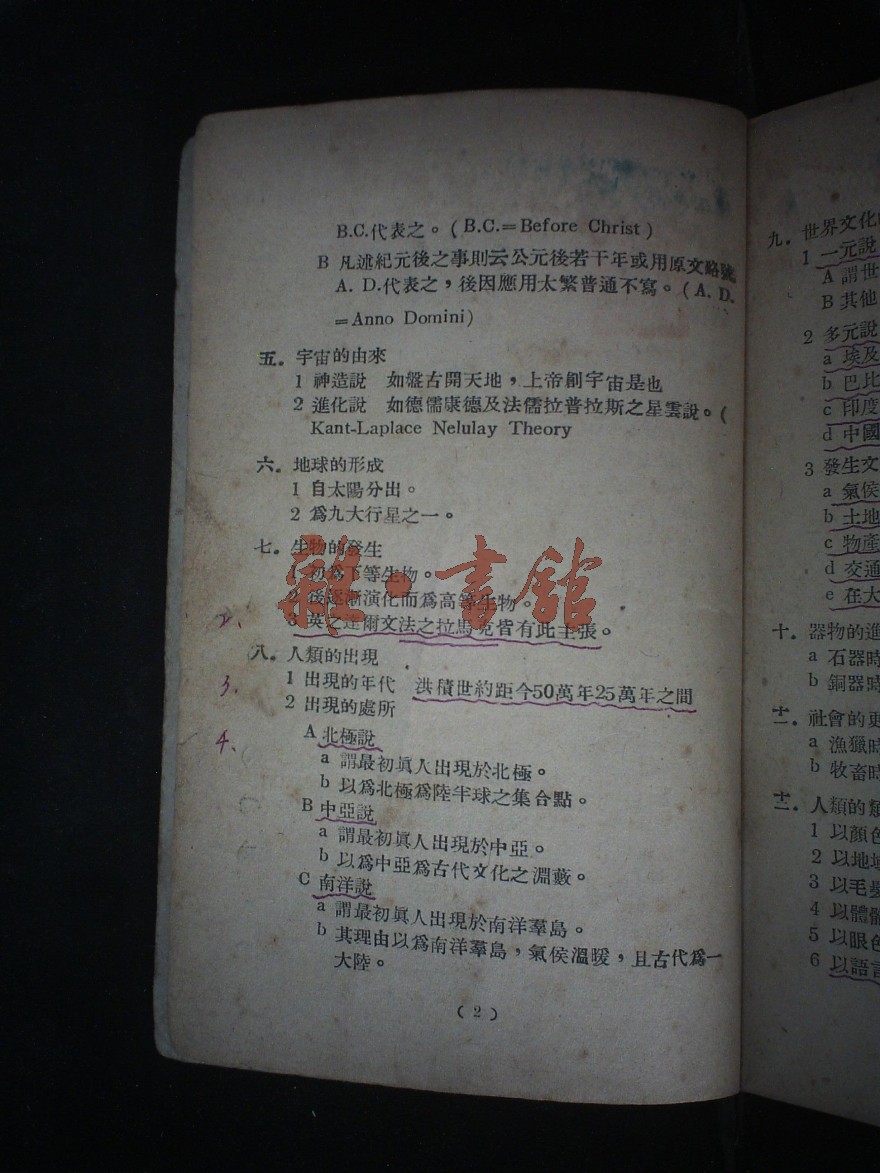 B.C.代表之。(B.C.=Before Christ)
B 凡述紀元後之事則云公元後若干年或用原文略號
A. D.代表之，後因應用太繁普通不寫。(A. D.
=Anno Domini)
五。宇宙的由來
1 神造說 如盤古開天地，上帝創宇宙是也
2 進化說 如德儒康德及法儒拉普拉斯之星雲說。(
Kant-Laplace Nelulay Theory
六。地球的形成
1 自太陽分出。
2 爲九大行星之一。
七。生物的發生
1 初爲下等生物。
2 後逐漸演化而爲高等生物。
2.
3 英之達爾文法之拉馬克皆有此主張。
八。人類的出現
3.
1 出現的年代 洪積世約距今50萬年25萬年之間
2 出現的處所
4.
A 北極說
a 謂最初眞人出現於北極。
b 以爲北極爲陸半球之集合點。
B 中亞說
a 謂最初眞人出現於中亞。
b 以爲中亞爲古代文化之淵藪。
C 南洋說
a 謂最初眞人出現於南洋羣島。
b 其理由以爲南洋羣島，氣侯溫暖，且古代爲一
大陸。
(2)
雜·書館
九。世界文化
1 一元說
A 謂世
B 其他
2 多元說
a 埃及
b 巴比
c 印度
d 中國
3 發生文
a 氣侯
b 土地
c 物產
d 交通
e 在大
十。器物的進
a 石器時
b 銅器時
十一。社會的更
a 漁獵時
b 牧畜時
十二。人類的類
1 以顏色
2 以地域
3 以毛髮
4 以體骼
5 以眼色
6 以語言